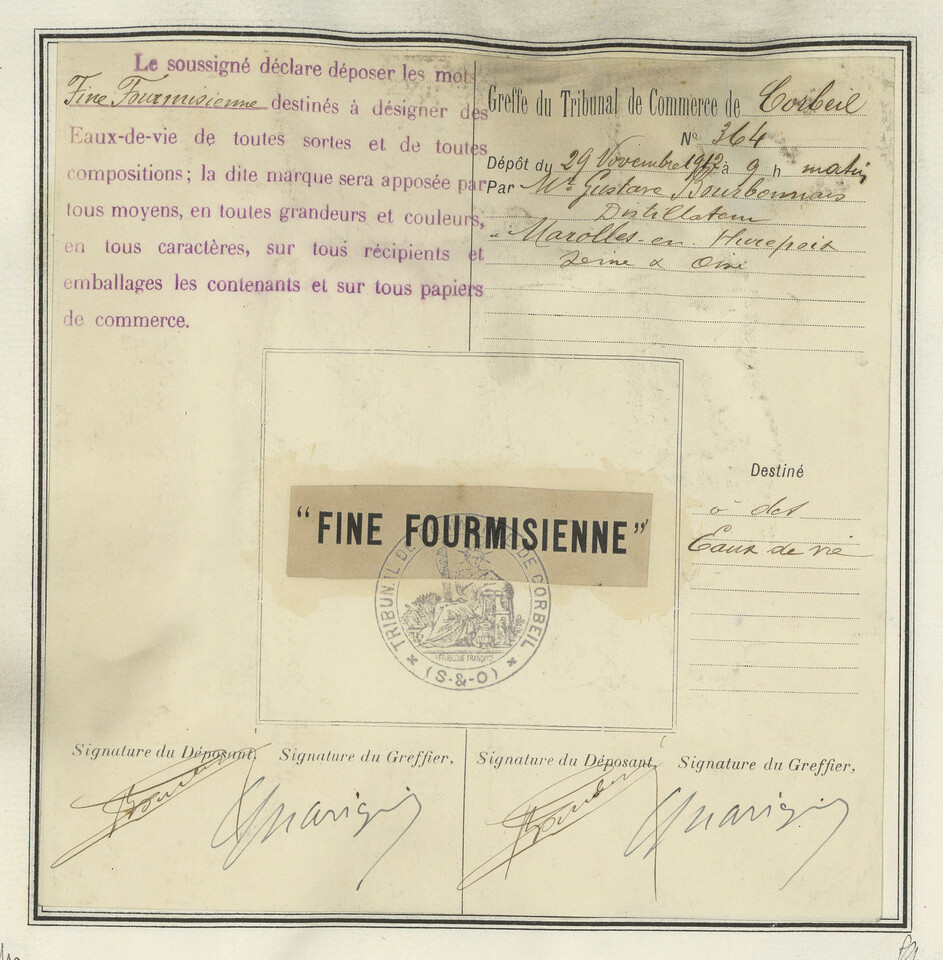 Le soussigné déclare déposer les mots
Fine Fourmisienne destinés à désigner des
Eaux-de-vie de toutes sortes et de toutes
compositions ; la dite marque sera apposée par
tous moyens, en toutes grandeurs et couleurs,
en tous caractères, sur tous récipients et
emballages les contenants et sur tous papiers
de commerce.
Greffe du Tribunal de Commerce de Corbeil
N° 364
Dépôt du 29 Novembre 1912 à 9 h matin
Par Mr Gustave Bourbonnais
Distillateur
à Marolles-en-Hurepoix
Seine & Oise
Destiné
à des
Eaux de vie
"FINE FOURMISIENNE"
TRIBUNAL DE COMMERCE DE CORBEIL
RÉPUBLIQUE FRANÇAISE
(S-&-O)
Signature du Déposant, Signature du Greffier,
Signature du Déposant, Signature du Greffier,